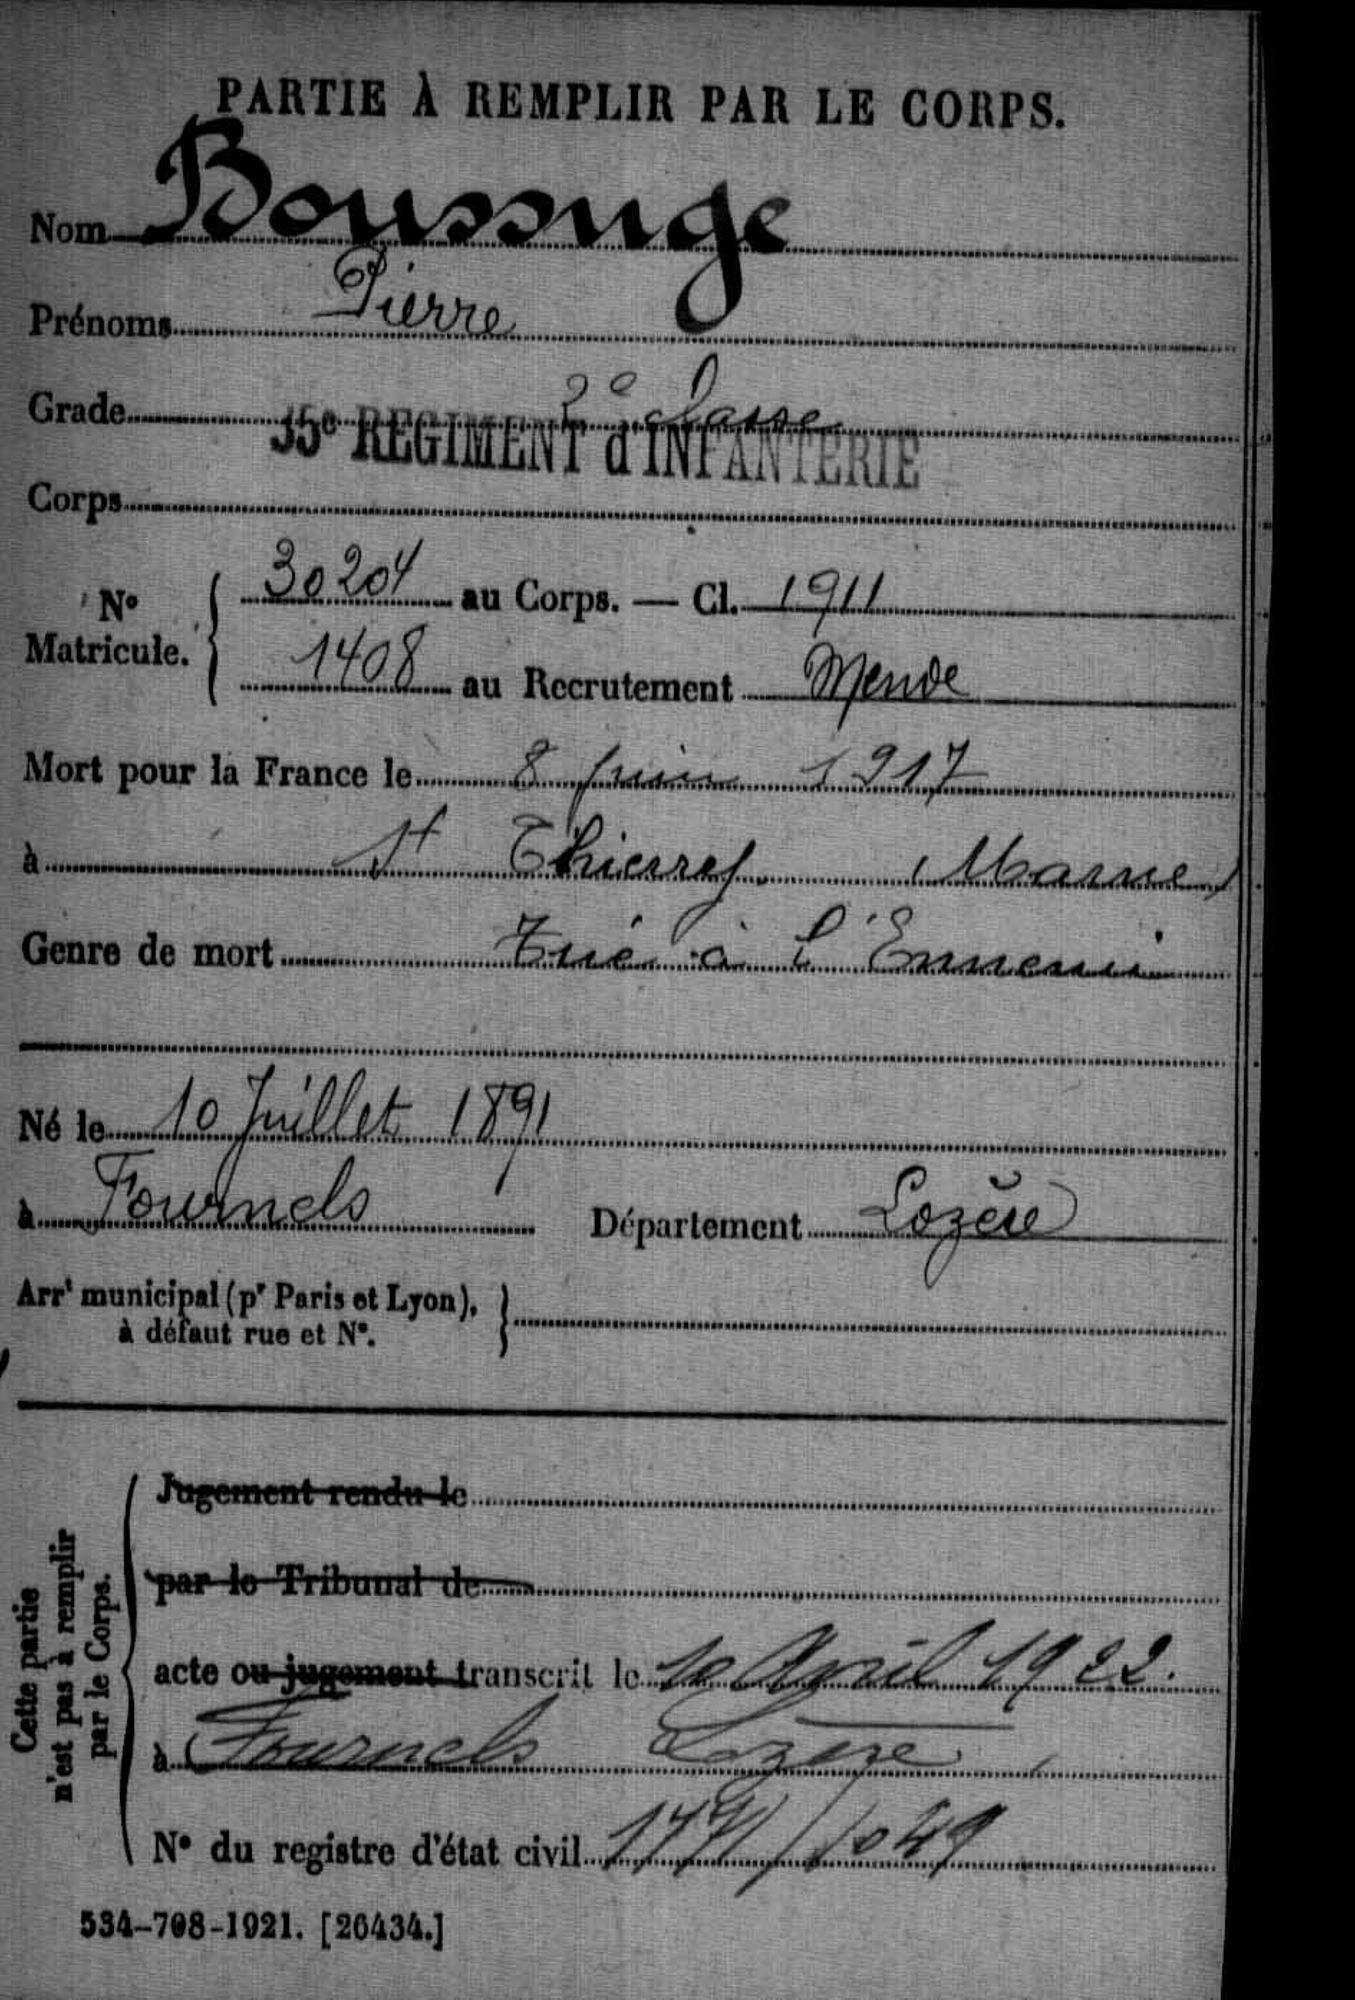 PARTIE À REMPLIR PAR LE CORPS.
Nom Boussuge
Prénoms Pierre
Grade 2e classe
35e REGIMENT d'INFANTERIE
Corps
No Matricule. 30204 au Corps. — Cl. 1911
1408 au Recrutement Mende
Mort pour la France le 8 juin 1917
à St Thierry (Marne)
Genre de mort Tué à l'Ennemi
Né le 10 Juillet 1891
à Fournels Département Lozère
Arrt municipal (pr Paris et Lyon),
à défaut rue et No.
Cette partie
n'est pas à remplir
par le Corps.
Jugement rendu le
par le Tribunal de
acte ou jugement transcrit le 10 Avril 1922.
à Fournels Lozère
No du registre d'état civil 1771/1049
534-708-1921. [26434.]